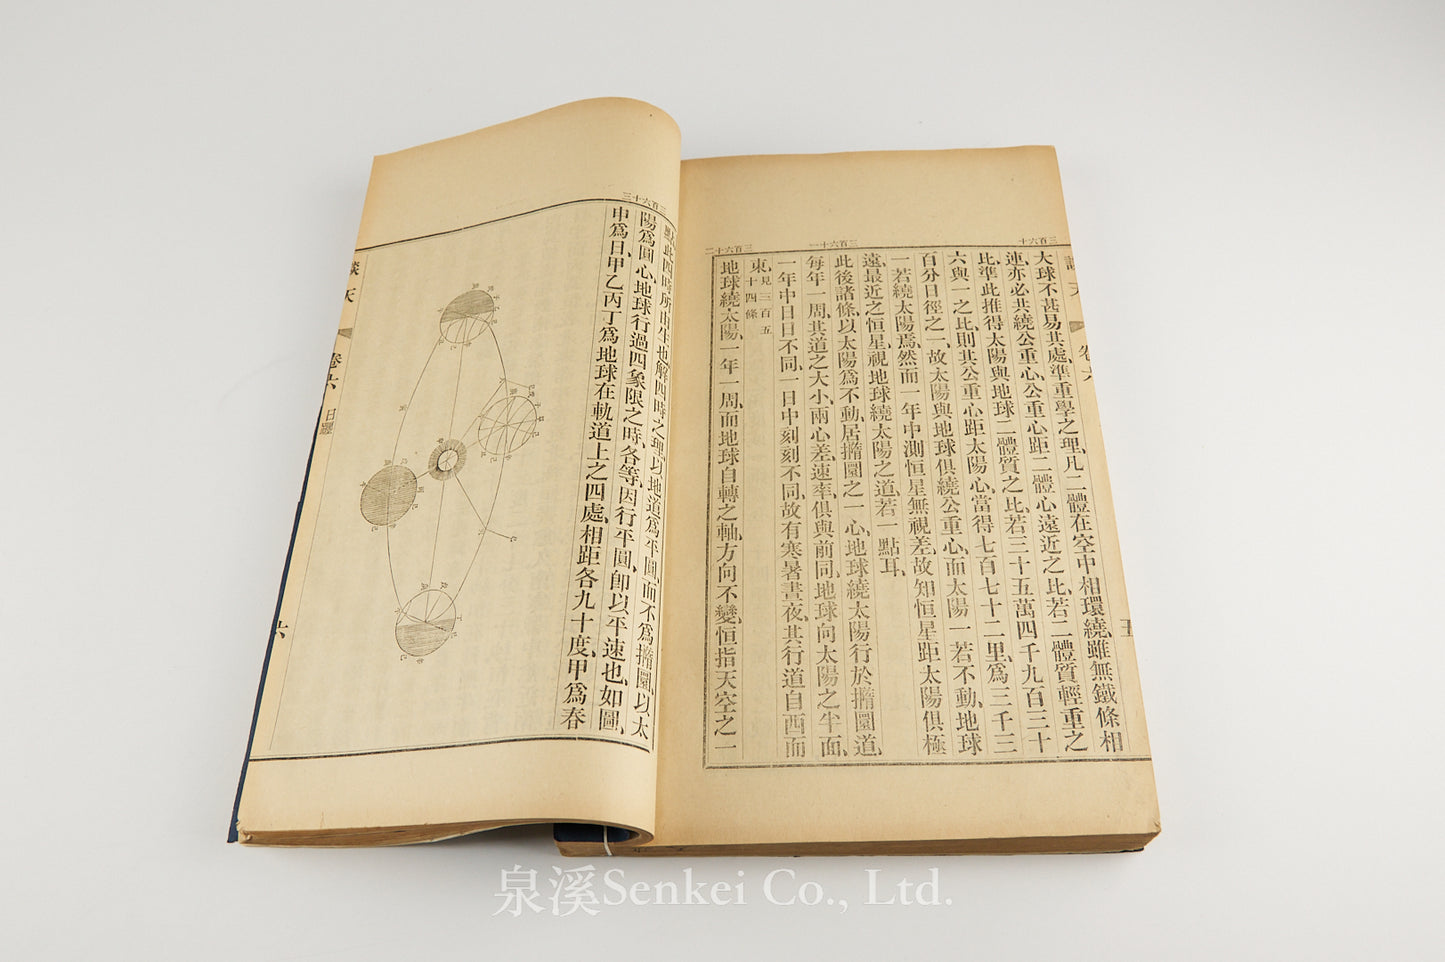 三百六十
三百六十一
三百六十二
大球不甚易其處準重學之理凡二體在空中相環繞雖無鐵條相
連亦必共繞公重心公重心距二體心遠近之比若二體質輕重之
比準此推得太陽與地球二體質之比若三十五萬四千九百三十
六與一之比則其公重心距太陽心當得七百七十二里爲三千三
百分日徑之一故太陽與地球俱繞公重心而太陽一若不動地球
一若繞太陽焉然而一年中測恒星無視差故知恒星距太陽俱極
遠最近之恒星視地球繞太陽之道若一點耳
此後諸條以太陽爲不動居撱圜之一心地球繞太陽行於撱圜道
每年一周其道之大小兩心差速率俱與前同地球向太陽之半面
一年中日日不同一日中刻刻不同故有寒暑晝夜其行道自西而
東見三百五
十四條
地球繞太陽一年一周而地球自轉之軸方向不變恒指天空之一
三百六十三
點此四時所由生也解四時之理以地道爲平圜而不爲撱圜以太
陽爲圜心地球行過四象限之時各等因行平圜卽以平速也如圖
申爲日甲乙丙丁爲地球在軌道上之四處相距各九十度甲爲春
談天
卷六
日躔
六
泉溪Senkei Co., Ltd.